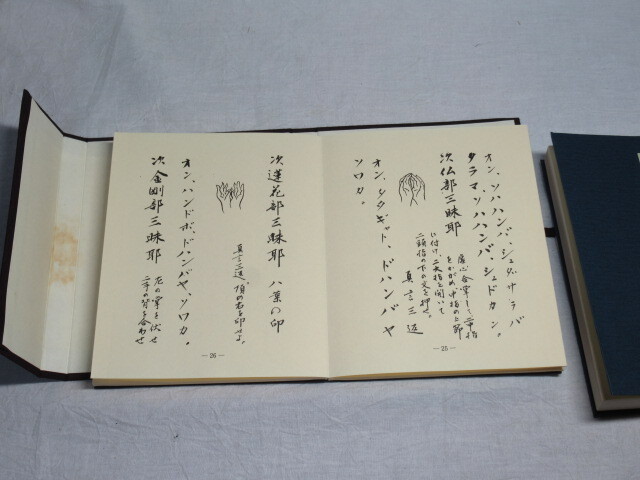 オン、ソハハンバ、シュダ、サラバ
タラマ、ソハハンバ、シュドカン。
次仏部三昧耶
虚心合掌して二中指
をかがめ、中指の上節
に付け、二大指を開いて
二頭指の下の文を押せ。
真言三返
オン、タタギャト、ドハンバヤ
ソワカ。
— 25 —
次蓮花部三昧耶 八葉の印
真言三返、頂の右を印せよ。
オン、ハンドボ、ドハンバヤ、ソワカ。
次金剛部三昧耶
左の掌を伏せ
二手の背を合わせ
— 26 —